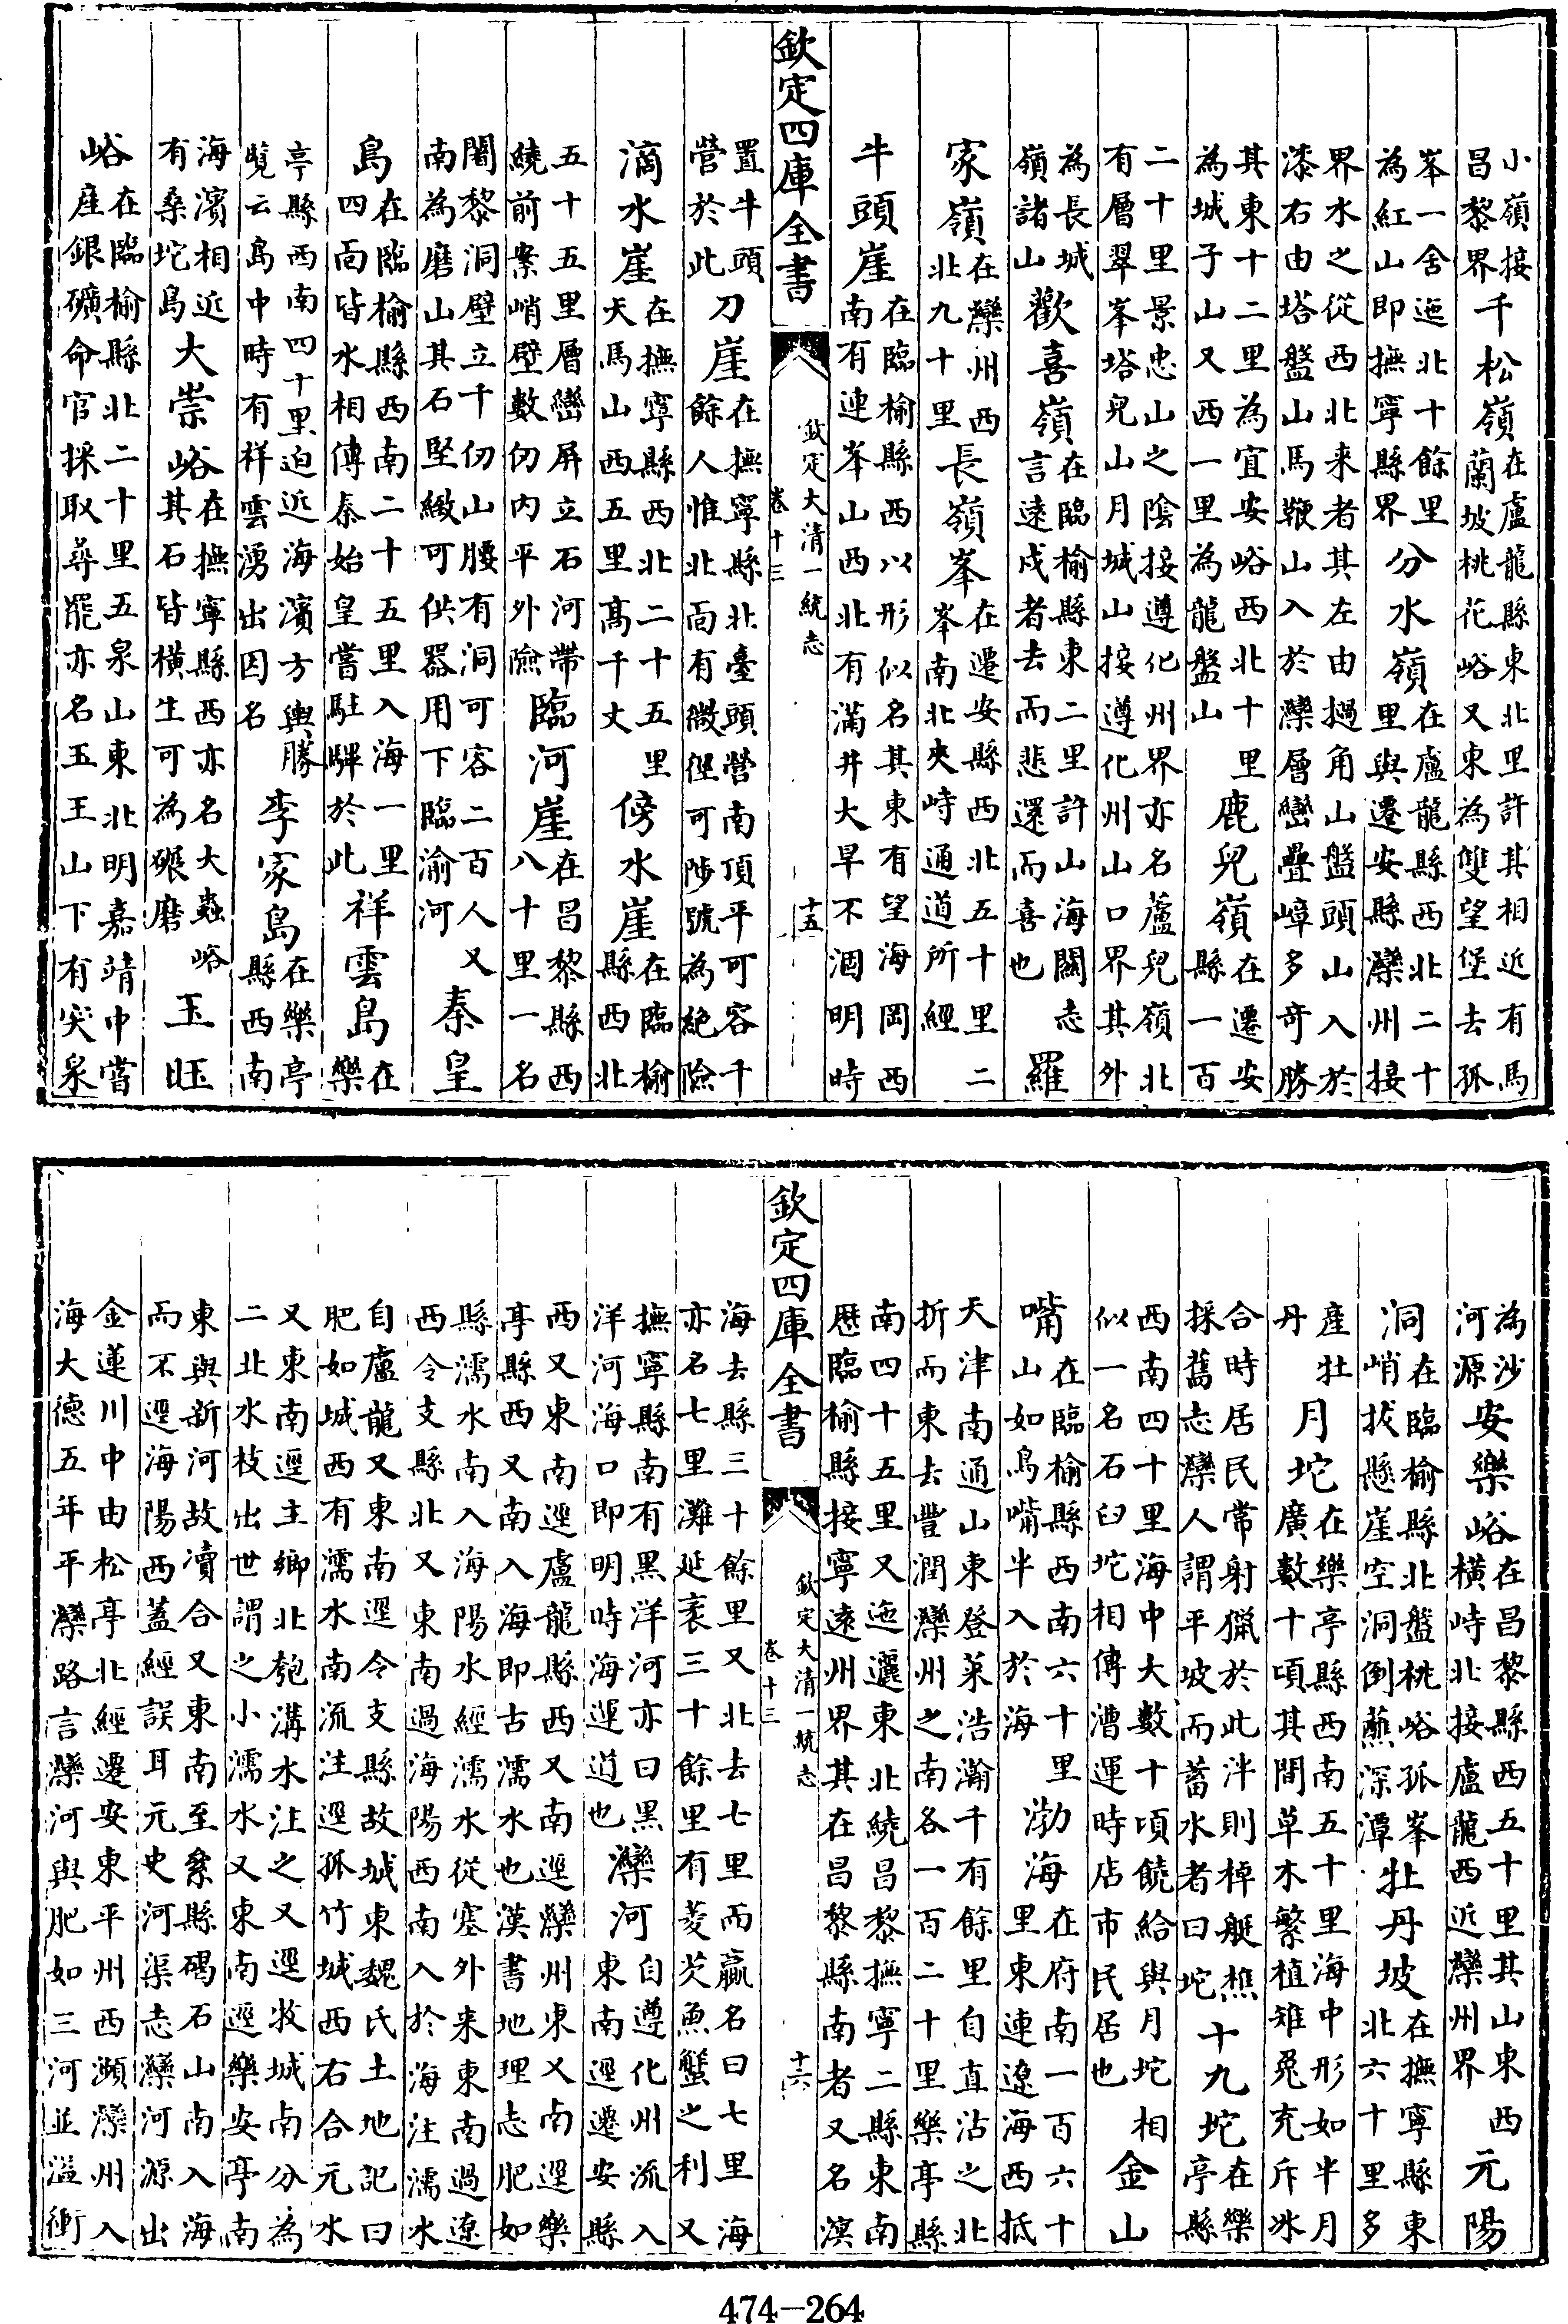 小嶺接
昌黎界
千松嶺
在盧龍縣東北里許其相近有馬
蘭坡桃花峪又東為雙望堡去孤
峯一舍迤北十餘里
為紅山即撫寧縣界
分水嶺
在盧龍縣西北二十
里與遷安縣灤州接
界水之從西北來者其左由角山盤頭山入於
漆右由塔盤山馬鞭山入於灤層巒疊嶂多奇勝
其東十二里為宜安峪西北十里
為城子山又西一里為龍盤山
鹿兒嶺
在遷安
縣一百
二十里景忠山之陰接遵化州界亦名蘆兒嶺北
有層翠峯塔兒山月城山接遵化州山口界其外
為長城
嶺諸山
歡喜嶺
在臨榆縣東二里許山海關志
言遠戍者去而悲還而喜也
羅
家嶺
在灤州西
北九十里
長嶺峯
在遷安縣西北五十里二
峯南北夾峙通道所經
牛頭崖
在臨榆縣西以形似名其東有望海岡西
南有連峯山西北有滿井大旱不涸明時
欽定四庫全書
欽定大清一統志
卷十三
十五
置牛頭
營於此
刀崖
在撫寧縣北臺頭營南頂平可容千
餘人惟北面有微徑可陟號為絶險
滴水崖
在撫寧縣西北二十五里
天馬山西五里高千丈
傍水崖
在臨榆
縣西北
五十五里層巒屏立石河帶
繞前案峭壁數仞内平外險
臨河崖
在昌黎縣西
八十里一名
闍黎洞壁立千仞山腰有洞可容二百人又
南為磨山其石堅緻可供器用下臨渝河
秦皇
島
在臨榆縣西南二十五里入海一里
四面皆水相傳秦始皇嘗駐驆於此
祥雲島
在
樂
亭縣西南四十里迫近海濱方輿勝
覽云島中時有祥雲湧出因名
李家島
在樂亭
縣西南
海濱相近
有桑坨島
大崇峪
在撫寧縣西亦名大蟲峪
其石皆横生可為碾磨
玉旺
峪
在臨榆縣北二十里五泉山東北明嘉靖中嘗
産銀礦命官採取尋罷亦名玉王山下有突泉
為沙
河源
安樂峪
在昌黎縣西五十里其山東西
横峙北接盧龍西近灤州界
元陽
洞
在臨榆縣北盤桃峪孤峯
峭拔懸崖空洞倒蘸深潭
牡丹坡
在撫寧縣東
北六十里多
産牡
丹
月坨
在樂亭縣西南五十里海中形如半月
廣數十頃其間草木繁植雉兔充斥冰
合時居民常射獵於此泮則棹艇樵
採舊志灤人謂平坡而蓄水者曰坨
十九坨
在樂
亭縣
西南四十里海中大數十頃饒給與月坨相
似一名石臼坨相傳漕運時店市民居也
金山
嘴
在臨榆縣西南六十里
山如鳥嘴半入於海
渤海
在府南一百六十
里東連遼海西抵
天津南通山東登萊浩瀚千有餘里自直沽之北
折而東去豐潤灤州之南各一百二十里樂亭縣
南四十五里又迤邐東北繞昌黎撫寧二縣東南
歴臨榆縣接寧遠州界其在昌黎縣南者又名溟
欽定四庫全書
欽定大清一統志
卷十三
十六
海去縣三十餘里又北去七里而贏名曰七里海
亦名七里灘延袤三十餘里有菱芡魚蟹之利又
撫寧縣南有黑洋河亦曰黑
洋河海口即明時海運道也
灤河
自遵化州流入
東南逕遷安縣
西又東南逕盧龍縣西又南逕灤州東又南逕樂
亭縣西又南入海即古濡水也漢書地理志肥如
縣濡水南入海陽水經濡水從塞外來東南過遼
西令支縣北又東南過海陽西南入於海注濡水
自盧龍又東南逕令支縣故城東魏氏土地記曰
肥如城西有濡水南流注逕孤竹城西右合元水
又東南逕主鄉北匏溝水注之又逕牧城南分為
二北水枝出世謂之小濡水又東南逕樂安亭南
東與新河故瀆合又東南至絫縣碣石山南入海
而不逕海陽西蓋經誤耳元史河渠志灤河源出
金蓮川中由松亭北經遷安東平州西瀕灤州入
海大德五年平灤路言灤河與肥如三河並溢衝
474—264